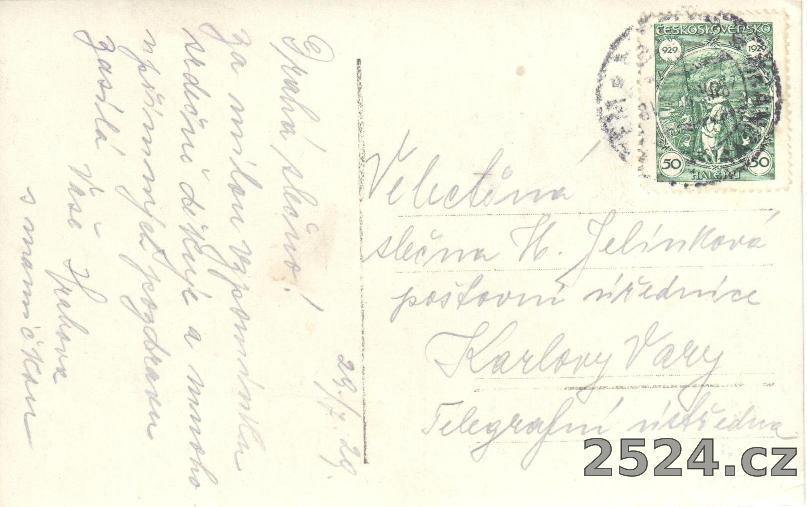 Drahá slečno!
za milou vzpomínku
srdečně děkuji a mnoho
upřímných pozdravů
zasílá Vaše
s maminkou
29/7. 29.
Velectěná
slečna H. Jelínková
poštovní úřednice
Karlovy Vary
Telegrafní ústředna
ČESKOSLOVENSKO
929 1929
50 HALÉŘŮ 50
2524.cz